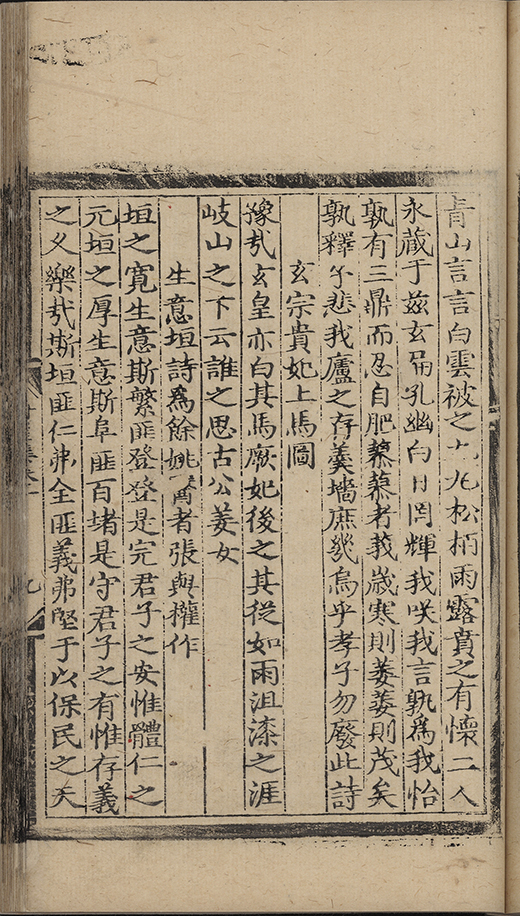 青山言言白雲被之松栢雨露賁之有懷二人
永藏于茲玄扃孔幽白日罔輝我咲我言孰為我怡
孰有三鼎而忍自肥慕慕者莪歲寒則萎萎則茂矣
孰釋尒悲我廬之存羹墻庶幾烏乎孝子勿廢此詩
玄宗貴妃上馬圖
豫哉玄皇亦白其馬厥妃後之其從如雨沮漆之涯
岐山之下云誰之思古公姜女
生意垣詩為餘姚醫者張與權作
垣之寬生意斯繁匪登登是完君子之安惟體仁之
元垣之厚生意斯阜匪百堵是守君子之有惟存義
之久樂哉斯垣匪仁弗全匪義弗堅于以保民之天